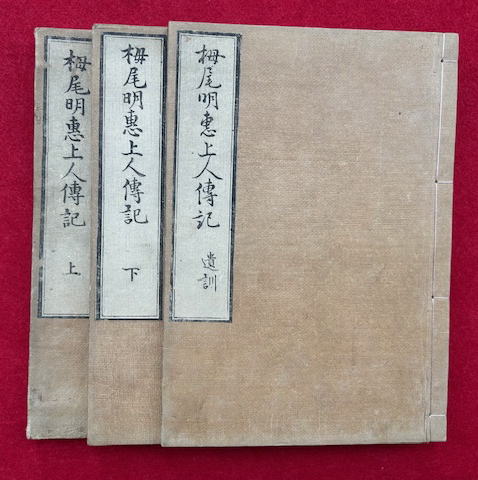 栂尾明恵上人傳記
遺訓
栂尾明恵上人傳記
下
栂尾明恵上人傳記
上